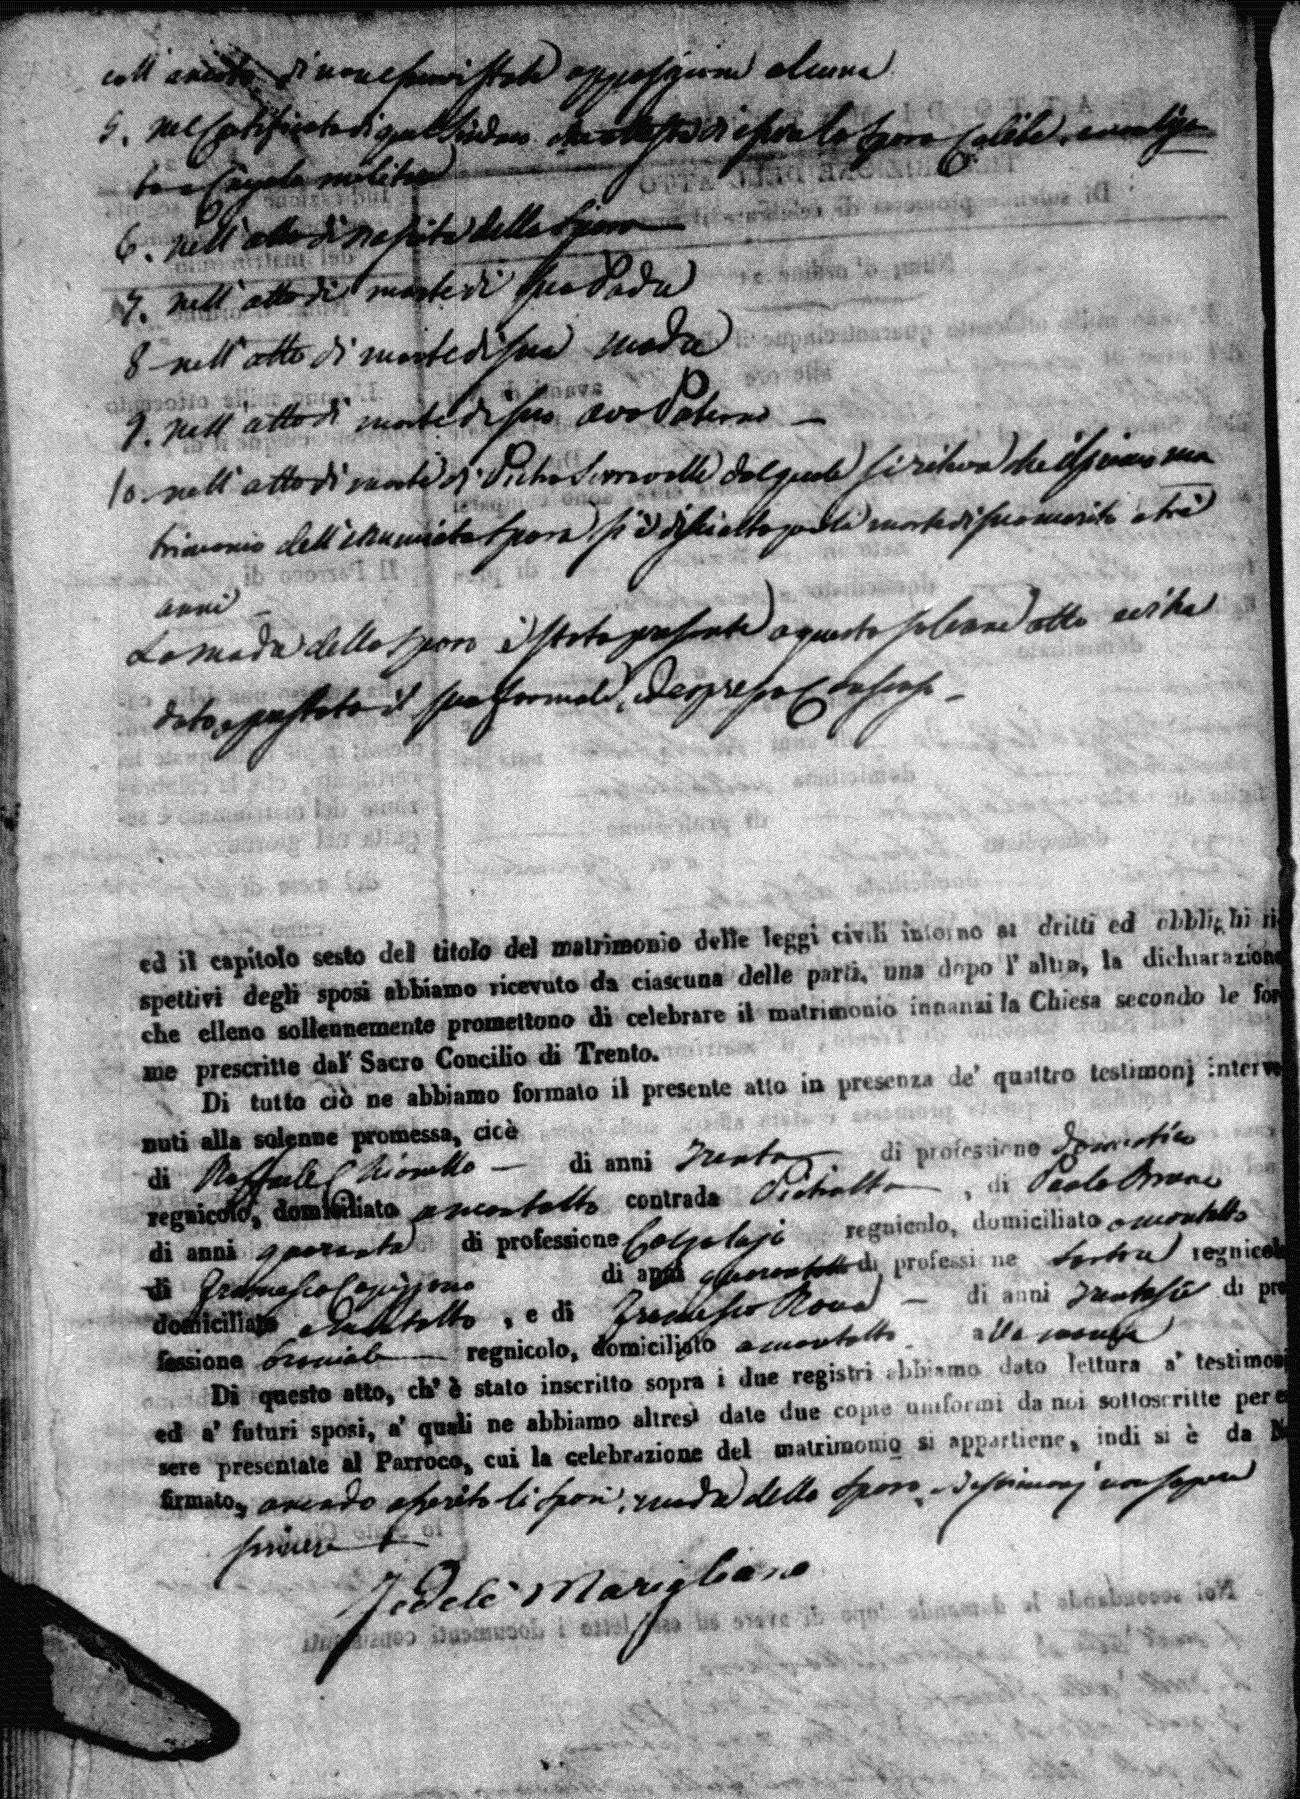 coll' di non esservi stata opposizione alcuna
5. nel Certificato di quel Sindaco che attesta di essere lo sposo Celibe,
to a Cingolo militare
6. nell' atto di nascita della Sposa
7. nell' atto di morte di suo Padre
8 nell' atto di morte di sua madre
9. nell' atto di morte di suo avo Paterno —
10. nell' atto di morte di Pietro dal quale si rileva che il primo ma
trimonio dell' enunciata sposa si è disciolto per la morte di suo marito a tre
anni —
La madre dello sposo è stata presente a questo solenne atto ed ha
dato, e prestato il suo formale, ed espresso Consenso —
ed il capitolo sesto del titolo del matrimonio delle leggi civili intorno ai dritti ed obblighi ri-
spettivi degli sposi abbiamo ricevuto da ciascuna delle parti, una dopo l' altra, la dichiarazione
che elleno sollennemente promettono di celebrare il matrimonio innanzi la Chiesa secondo le for
me prescritte dal' Sacro Concilio di Trento.
Di tutto ciò ne abbiamo formato il presente atto in presenza de' quattro testimonj interve
nuti alla solenne promessa, cioè
di Raffaele — di anni trenta di professione domestico
regnicolo, domiciliato a montalto contrada , di Paolo
di anni quaranta di professione Calzolajo regnicolo, domiciliato a montalto
di Francesco di anni quaranta di professione sartore regnicolo
domiciliato a Montalto , e di Francesco — di anni trentasei di pro
fessione regnicolo, domiciliato a montalto
Di questo atto, ch' è stato inscritto sopra i due registri abbiamo dato lettura a' testimoni
ed a' futuri sposi, a' quali ne abbiamo altresì date due copie uniformi da noi sottoscritte per es
sere presentate al Parroco, cui la celebrazione del matrimonio si appartiene, indi si è da N
firmato, avendo asserito li sposi, madre dello sposo, e testimonj non sapere
scrivere
Fedele Marigliano